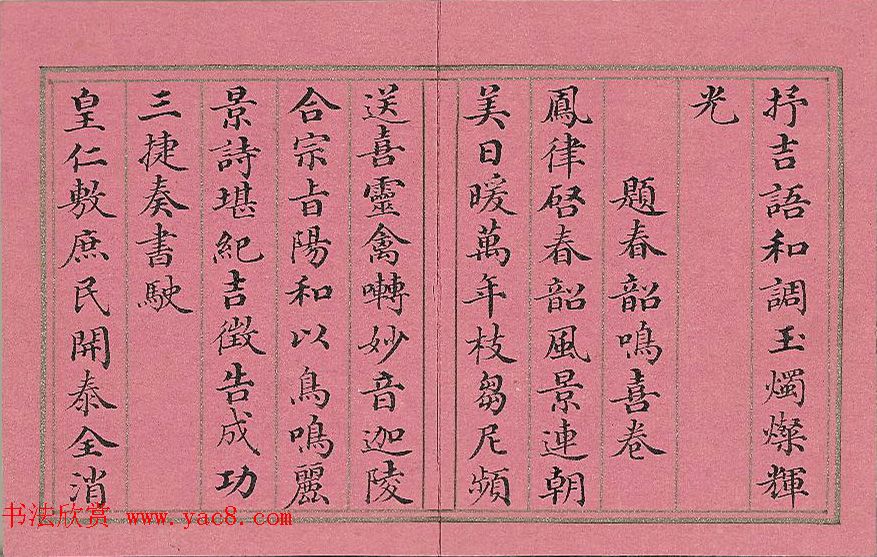 抒吉語和調玉燭燦輝
光
題春韶鳴喜卷
鳳律啓春韶風景連朝
美日暖萬年枝芻尼頻
送喜靈禽囀妙音迦陵
合宗旨陽和以鳥鳴麗
景詩堪紀吉徵告成功
三捷奏書駛
皇仁敷庶民開泰全消
书法欣赏 www.yac8.com